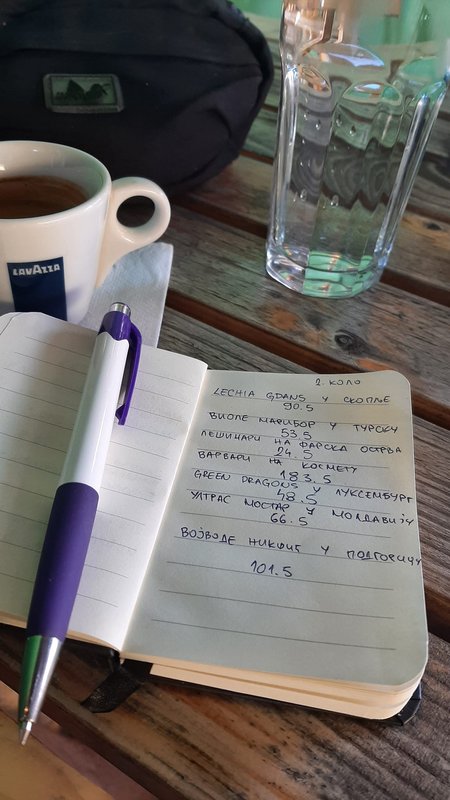 LAVAZZA
2. КОЛО
LECHIA GDANS У СКОПЉЕ
90.5
ВИОЛЕ МАРИБОР У ТУРСКУ
53.5
ЛЕШИНАРИ НА ФАРСКА ОСТРВА
24.5
ВАРВАРИ НА КОСМЕТУ
183.5
GREEN DRAGONS У ЛУКСЕМБУРГ
48.5
УЛТРАС МОСТАР У МОЛДАВИЈУ
66.5
ВОЈВОДЕ НИКШИЋ У ПОДГОРИЦУ
101.5